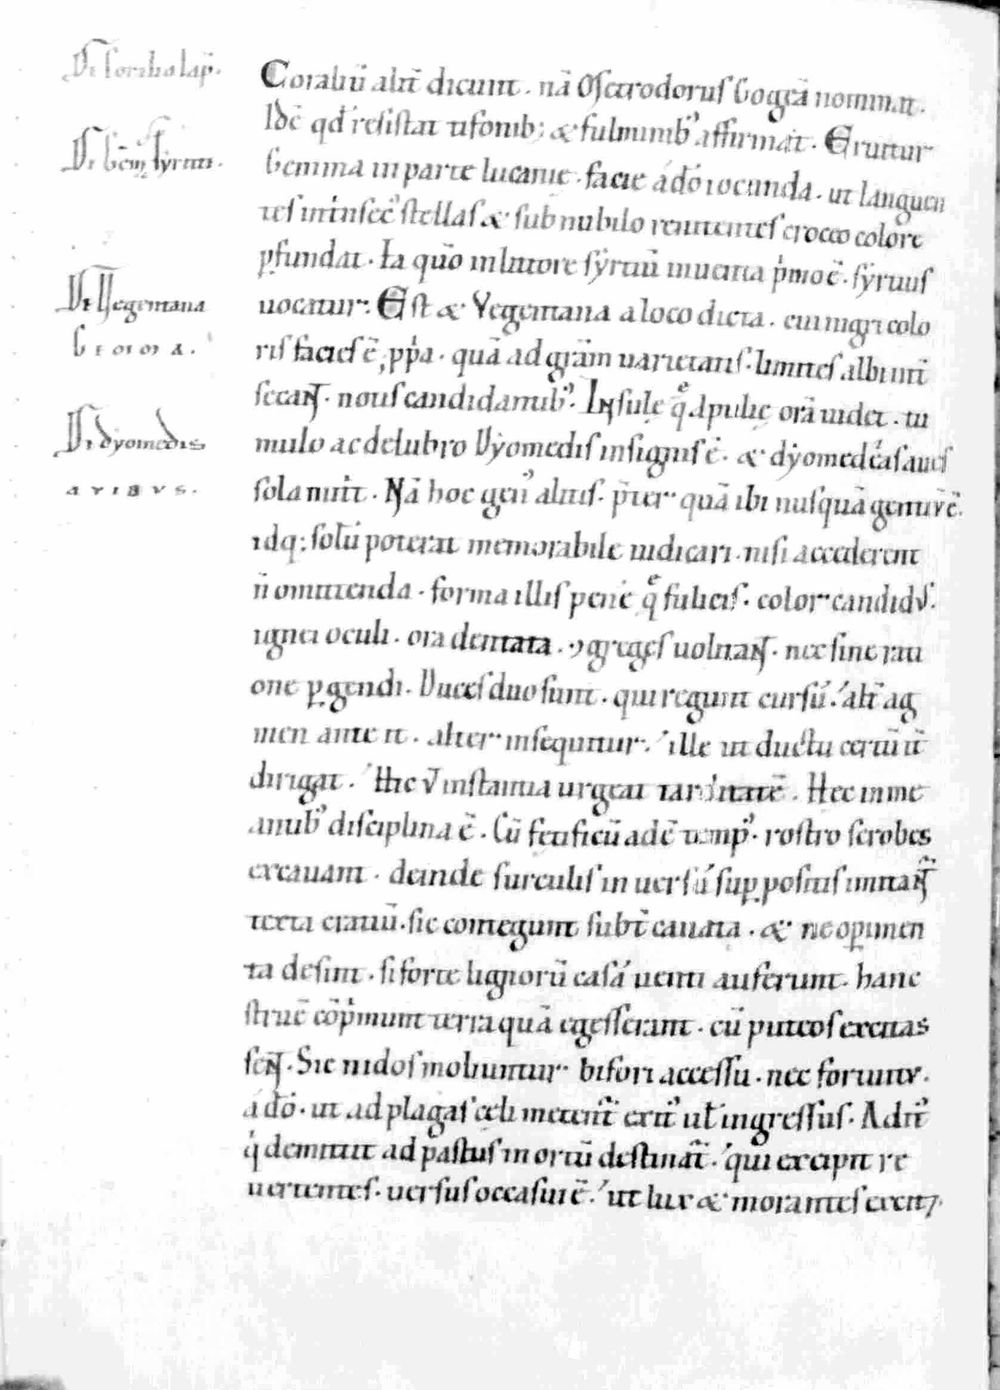 De
Coraliū alit̄ dicunt . nā Osctrodorus Gogeā nominat .
Idē qd́ resistat tifonib; & fulminib᾽ affirmat . Eruitur
De Gem̄ Syrtiti .
Gemma in parte lucanie . facie ádō iocunda . ut languen
tes intinsec᾽ stellas & sub nubilo renitentes croceo colore
ꝑfundat . Ia quō in littore syrtiū inuenta p̍mo ē . syrtius
De Vegentana
uocatur . Est & Vegentana a loco dicta . cui nigri colo
Gemma .
ris facies ē , ꝓp̍a . quā ad grām uarietatis . limites albi int̄
secant . nous candidantib᾽ . Insule q̄ Apulię orā uidet . tu
De dyomedis
mulo ac delubro Dyomedis insignis ē . & dyomedeas aues
avibvs .
sola nutrit . Nā hoc gen᾽ alitis . p̄ter quā ibi nusquā gentiū ē .
idq; solū poterat memorabile iudicari . nisi accederent
n̄ omittenda . forma illis pene q̄ fulicis . color candidus .
ignei oculi . ora dentata . ꝯgreges uolitant . nec sine rati
one ꝑgendi . Duces duo sunt . qui regunt cursū . alt̄ ag
men ante it . alter insequitur . ille ut ductu certū it̄
dirigat . Hic v̄ instantia urgeat tarditatē . Hec in me
antib᾽ disciplina ē . Cū fetificū adē temp᾽ . rostro scrobes
excauant . deinde surculis in uersū suꝑ positis imitant̄
texta cratiū . sic contegunt subt̄ cauata . & ne oꝑimen
ta desint . si forte lignorū casā uenti auferunt . hanc
struē cōp̍munt terra quā egesserant . cū puteos excitas
sent . Sic nidos moliuntur bifori accessu . nec fortuitv .
ádō . ut ad plagas celi metent̄ exit᾽ ul̄ ingressus . Adit᾽
q̍ demittit ad pastus in ortū destinat̄ . qui excipit re
uertentes . uersus occasū ē . ut lux & morantes excit;